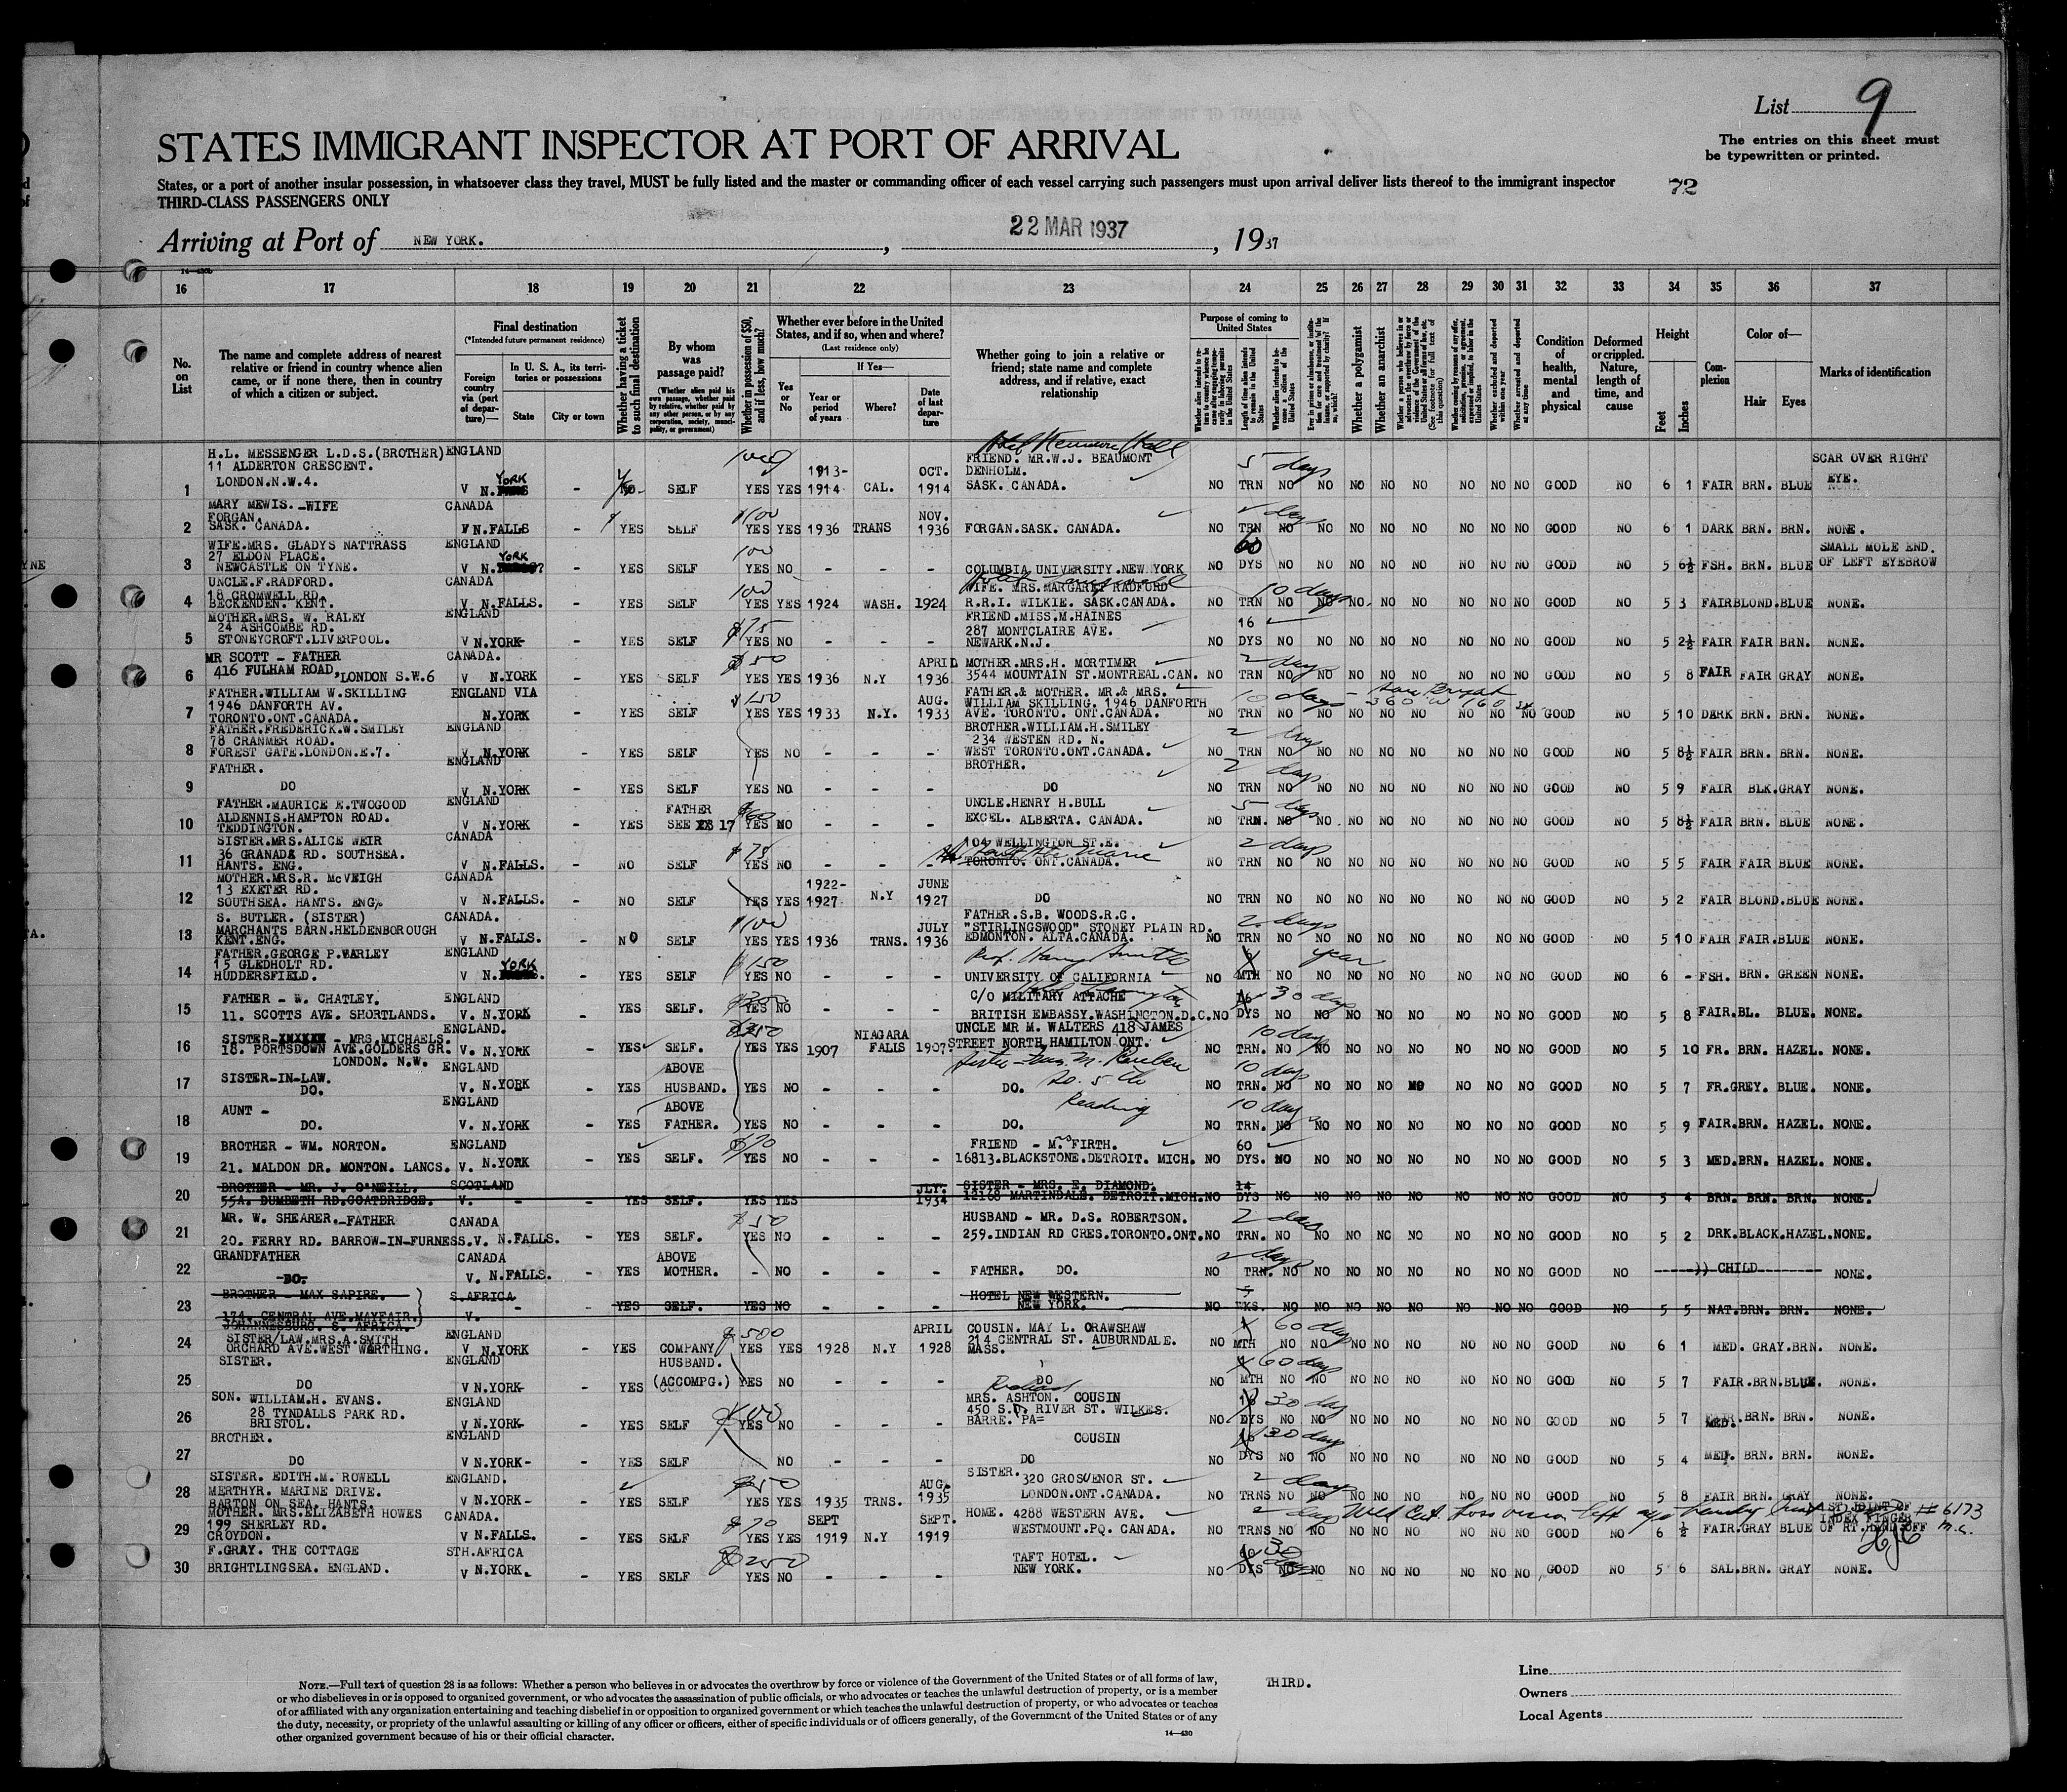 List 9
STATES IMMIGRANT INSPECTOR AT PORT OF ARRIVAL
The entries on this sheet must
be typewritten or printed.
States, or a port of another insular possession, in whatsoever class they travel, MUST be fully listed and the master or commanding officer of each vessel carrying such passengers must upon arrival deliver lists thereof to the immigrant inspector
72
THIRD-CLASS PASSENGERS ONLY
Arriving at Port of NEW YORK. , 22 MAR 1937 , 1937
16 17 18 19 20 21 22 23 24 25 26 27 28 29 30 31 32 33 34 35 36 37
No. on List
The name and complete address of nearest relative or friend in country whence alien came, or if none there, then in country of which a citizen or subject.
Final destination
(*Intended future permanent residence)
Foreign country via (port of departure)—
In U. S. A., its territories or possessions
State
City or town
Whether having a ticket to such final destination
By whom was passage paid?
(Whether alien paid his own passage, whether paid by relative, whether paid by any other person, or by any corporation, society, municipality, or government)
Whether in possession of $50, and if less, how much?
Whether ever before in the United States, and if so, when and where?
(Last residence only)
Yes or No
If Yes—
Year or period of years
Where?
Date of last departure
Whether going to join a relative or friend; state name and complete address, and if relative, exact relationship
Purpose of coming to United States
Length of time alien intends to remain in the United States
Whether alien intends to become a citizen of the United States
Whether a polygamist
Whether an anarchist
Whether excluded and deported within one year
Whether arrested and deported at any time
Condition of health, mental and physical
Deformed or crippled. Nature, length of time, and cause
Height
Feet
Inches
Complexion
Color of—
Hair
Eyes
Marks of identification
H.L. MESSENGER L.D.S.(BROTHER) ENGLAND FRIEND. MR.W.J. BEAUMONT SCAR OVER RIGHT
11 ALDERTON CRESCENT. 1913- OCT. DENHOLM. 5 days
1 LONDON.N.W.4. V N.YORK - SELF YES YES 1914 CAL. 1914 SASK. CANADA. NO TRN NO NO NO NO NO NO NO NO GOOD NO 6 1 FAIR BRN. BLUE EYE.
MARY MEWIS.-WIFE CANADA $100
FORGAN. NOV.
2 SASK. CANADA. V N.FALLS - YES SELF YES YES 1936 TRANS 1936 FORGAN.SASK. CANADA. NO TRN NO NO NO NO NO NO NO NO GOOD NO 6 1 DARK BRN. BRN. NONE.
WIFE.MRS. GLADYS NATTRASS ENGLAND 100 60 SMALL MOLE END.
27 ELDON PLACE.
3 NEWCASTLE ON TYNE. V N.YORK - YES SELF YES NO - - - COLUMBIA UNIVERSITY.NEW YORK NO DYS NO NO NO NO NO NO NO NO GOOD NO 5 6½ FSH. BRN. BLUE OF LEFT EYEBROW
UNCLE.F.RADFORD. CANADA 100 WIFE. MRS.MARGARET RADFORD 10 days
18 CROMWELL RD.
4 BECKENDEN. KENT. V N.FALLS. - YES SELF YES YES 1924 WASH. 1924 R.R.I. WILKIE. SASK.CANADA. NO TRN NO NO NO NO NO NO NO NO GOOD NO 5 3 FAIR BLOND.BLUE NONE.
MOTHER.MRS. W. RALEY ENGLAND $75 FRIEND.MISS.M.HAINES
24 ASHCOMBE RD. 287 MONTCLAIRE AVE. 16
5 STONEYCROFT.LIVERPOOL. V N.YORK - YES SELF YES NO - - - NEWARK.N.J. NO DYS NO NO NO NO NO NO NO NO GOOD NO 5 2½ FAIR FAIR BRN. NONE.
MR SCOTT - FATHER CANADA. $50 APRIL MOTHER.MRS.H. MORTIMER 2 days
6 416 FULHAM ROAD, LONDON S.W.6 V N.YORK - YES SELF YES YES 1936 N.Y 1936 3544 MOUNTAIN ST.MONTREAL.CAN. NO TRN NO NO NO NO NO NO NO NO GOOD NO 5 8 FAIR FAIR GRAY NONE.
FATHER.WILLIAM W.SKILLING ENGLAND VIA $150 FATHER.& MOTHER. MR.& MRS.
1946 DANFORTH AV. AUG. WILLIAM SKILLING. 1946 DANFORTH 10 days 360 W 160 St
7 TORONTO.ONT.CANADA. N.YORK - YES SELF YES YES 1933 N.Y. 1933 AVE. TORONTO. ONT.CANADA. NO TRN NO NO NO NO NO NO NO NO GOOD NO 5 10 DARK BRN. BRN. NONE.
FATHER.FREDERICK.W.SMILEY ENGLAND BROTHER.WILLIAM.H.SMILEY
78 CRANMER ROAD. 234 WESTEN RD. N. 2 days
8 FOREST GATE.LONDON.E.7. V N.YORK - YES SELF YES NO - - - WEST TORONTO.ONT.CANADA. NO TRN NO NO NO NO NO NO NO NO GOOD NO 5 8½ FAIR BRN. BRN. NONE.
FATHER. ENGLAND BROTHER. 2 days
9 DO V N.YORK - YES SELF YES NO - - - DO NO TRN NO NO NO NO NO NO NO NO GOOD NO 5 9 FAIR BLK.GRAY NONE.
FATHER.MAURICE E.TWOGOOD ENGLAND FATHER UNCLE.HENRY H.BULL 5 days
ALDENNIS.HAMPTON ROAD.
10 TEDDINGTON. V N.YORK - YES SEE 17 YES NO - - - EXCEL. ALBERTA. CANADA. NO TRN. NO NO NO NO NO NO NO NO GOOD NO 5 8½ FAIR BRN. BLUE NONE.
SISTER.MRS.ALICE WEIR CANADA $75 104 WELLINGTON ST.E. 2 days
36 GRANADA RD. SOUTHSEA.
11 HANTS. ENG. V N.FALLS. - NO SELF YES NO - - TORONTO. ONT.CANADA. NO TRN NO NO NO NO NO NO NO NO GOOD NO 5 5 FAIR FAIR BLUE NONE.
MOTHER.MRS.R. McVEIGH CANADA 1922- JUNE
13 EXETER RD.
12 SOUTHSEA. HANTS. ENG. V N.FALLS. - NO SELF YES YES 1927 N.Y 1927 DO NO TRN NO NO NO NO NO NO NO NO GOOD NO 5 2 FAIR BLOND.BLUE NONE.
S. BUTLER. (SISTER) CANADA. $100 FATHER.S.B. WOODS.R.C. 2 days
MARCHANTS BARN.HELDENBOROUGH JULY "STIRLINGSWOOD" STONEY PLAIN RD.
13 KENT.ENG. V N.FALLS. - NO SELF YES YES 1936 TRNS. 1936 EDMONTON. ALTA.CANADA. NO TRN NO NO NO NO NO NO NO NO GOOD NO 5 10 FAIR FAIR.BLUE NONE.
FATHER.GEORGE P.VARLEY ENGLAND $150 Prof. Harry Smith year
15 GLEDHOLT RD.
14 HUDDERSFIELD. V N.YORK - YES SELF YES NO - - - UNIVERSITY OF CALIFORNIA NO MTH NO NO NO NO NO NO NO NO GOOD NO 6 - FSH. BRN. GREEN NONE.
FATHER - W. CHATLEY. ENGLAND C/O MILITARY ATTACHE 30 days
15 11. SCOTTS AVE. SHORTLANDS. V. N.YORK - YES SELF. YES NO - - - BRITISH EMBASSY.WASHINGTON.D.C. NO DYS NO NO NO NO NO NO NO NO GOOD NO 5 8 FAIR.BL. BLUE. NONE.
SISTER - MRS.MICHAELS. ENGLAND. NIAGARA UNCLE MR M. WALTERS 418 JAMES 10 days
16 18. PORTSDOWN AVE.GOLDERS GR. V. N.YORK - YES SELF. YES YES 1907 FALLS 1907. STREET NORTH HAMILTON ONT. NO TRN. NO NO NO NO NO NO NO NO GOOD NO 5 10 FR. BRN. HAZEL. NONE.
LONDON. N.W.
SISTER-IN-LAW. ENGLAND ABOVE 10 days
17 DO. V. N.YORK - YES HUSBAND. YES NO - - - DO. NO TRN. NO NO NO NO NO NO NO NO GOOD NO 5 7 FR.GREY. BLUE. NONE.
AUNT - ENGLAND ABOVE Reading 10 days
18 DO. V. N.YORK - YES FATHER. YES NO - - - DO. NO TRN. NO NO NO NO NO NO NO NO GOOD NO 5 9 FAIR.BRN. HAZEL. NONE.
BROTHER - WM. NORTON. ENGLAND $70 FRIEND - MRS FIRTH. 60
19 21. MALDON DR. MONTON. LANCS. V. N.YORK - YES SELF. YES NO - - - 16813.BLACKSTONE.DETROIT. MICH. NO DYS. NO NO NO NO NO NO NO NO GOOD NO 5 3 MED.BRN. HAZEL. NONE.
BROTHER - MR. J. O'NEILL. SCOTLAND JLY. SISTER - MRS. E. DIAMOND. 14
20 55A. DUMBETH RD.COATBRIDGE. V. - - YES SELF. YES YES 1934 12168 MARTINDALE. DETROIT.MICH. NO DYS NO NO NO NO NO NO NO NO GOOD NO 5 4 BRN. BRN. BRN. NONE.
MR. W. SHEARER.-FATHER CANADA $50 HUSBAND - MR. D.S. ROBERTSON. 2 days
21 20. FERRY RD. BARROW-IN-FURNESS. V. N.FALLS. - YES SELF. YES NO - - - 259.INDIAN RD CRES.TORONTO.ONT. NO TRN. NO NO NO NO NO NO NO NO GOOD NO 5 2 DRK.BLACK.HAZEL.NONE.
GRANDFATHER CANADA ABOVE 2 days
22 -DO. V. N.FALLS. - YES MOTHER. - NO - - - FATHER. DO. NO TRN. NO NO NO NO NO NO NO NO GOOD NO CHILD NONE.
BROTHER - MAX SAPIRE. S.AFRICA HOTEL NEW WESTERN. 5
23 134. CENTRAL AVE.MAYFAIR. V. - YES SELF. YES NO - - NEW YORK. NO WKS. NO NO NO NO NO NO NO NO GOOD NO 5 5 NAT.BRN. BRN. NONE.
JOHANNESBURG. S. AFRICA.
SISTER/LAW.MRS.A.SMITH ENGLAND $500 APRIL COUSIN. MAY L. CRAWSHAW 60 days
24 ORCHARD AVE.WEST WORTHING. V N.YORK - YES COMPANY YES YES 1928 N.Y 1928 214 CENTRAL ST. AUBURNDALE. MASS. NO MTH NO NO NO NO NO NO NO NO GOOD NO 6 1 MED. GRAY.BRN. NONE.
SISTER. ENGLAND HUSBAND. 60 days
25 DO V N.YORK - YES (ACCOMPG.) YES NO - - - DO NO MTH NO NO NO NO NO NO NO NO GOOD NO 5 7 FAIR.BRN.BLUE. NONE.
SON. WILLIAM.H. EVANS. ENGLAND MRS. ASHTON. COUSIN 30 days
28 TYNDALLS PARK RD. $100 450 S. RIVER ST. WILKES.
26 BRISTOL. V N.YORK - YES SELF YES NO - - - BARRE. PA= NO DYS NO NO NO NO NO NO NO NO GOOD NO 5 7 MED. BRN. BRN. NONE.
BROTHER. ENGLAND COUSIN 30 days
27 DO V N.YORK - YES SELF NO - - - DO NO DYS NO NO NO NO NO NO NO NO GOOD NO 5 4 MED. BRN. BRN. NONE.
SISTER. EDITH.M. ROWELL ENGLAND. $50 SISTER. 320 GROSVENOR ST. 2 days
MERTHYR. MARINE DRIVE. AUG.
28 BARTON ON SEA. HANTS. V N.YORK - YES SELF YES YES 1935 TRNS. 1935 LONDON.ONT.CANADA. NO TRNS NO NO NO NO NO NO NO NO GOOD NO 5 8 FAIR BRN. GRAY NONE.
MOTHER. MRS.ELIZABETH HOWES CANADA. $70 SEPT SEPT. HOME. 4288 WESTERN AVE. 2 days Med Cert Loss vision left eye 1ST JOINT OF #6173
199 SHERLEY RD. INDEX FINGER
29 CROYDON. V N.FALLS. - YES SELF YES YES 1919 N.Y 1919 WESTMOUNT.PQ. CANADA. NO TRNS NO NO NO NO NO NO NO NO GOOD NO 6 ½ FAIR.GRAY BLUE OF RT.HAND OFF
F.GRAY. THE COTTAGE STH.AFRICA $250 TAFT HOTEL. 30
30 BRIGHTLINGSEA. ENGLAND. V N.YORK. - YES SELF YES NO - - - NEW YORK. NO DYS NO NO NO NO NO NO NO NO GOOD NO 5 6 SAL.BRN. GRAY NONE.
NOTE.—Full text of question 28 is as follows: Whether a person who believes in or advocates the overthrow by force or violence of the Government of the United States or of all forms of law,
or who disbelieves in or is opposed to organized government, or who advocates the assassination of public officials, or who advocates or teaches the unlawful destruction of property, or is a member
of or affiliated with any organization entertaining and teaching disbelief in or opposition to organized government or which teaches the unlawful destruction of property, or who advocates or teaches
the duty, necessity, or propriety of the unlawful assaulting or killing of any officer or officers, either of specific individuals or of officers generally, of the Government of the United States or of any
other organized government because of his or their official character.
14—430
THIRD.
Line
Owners
Local Agents